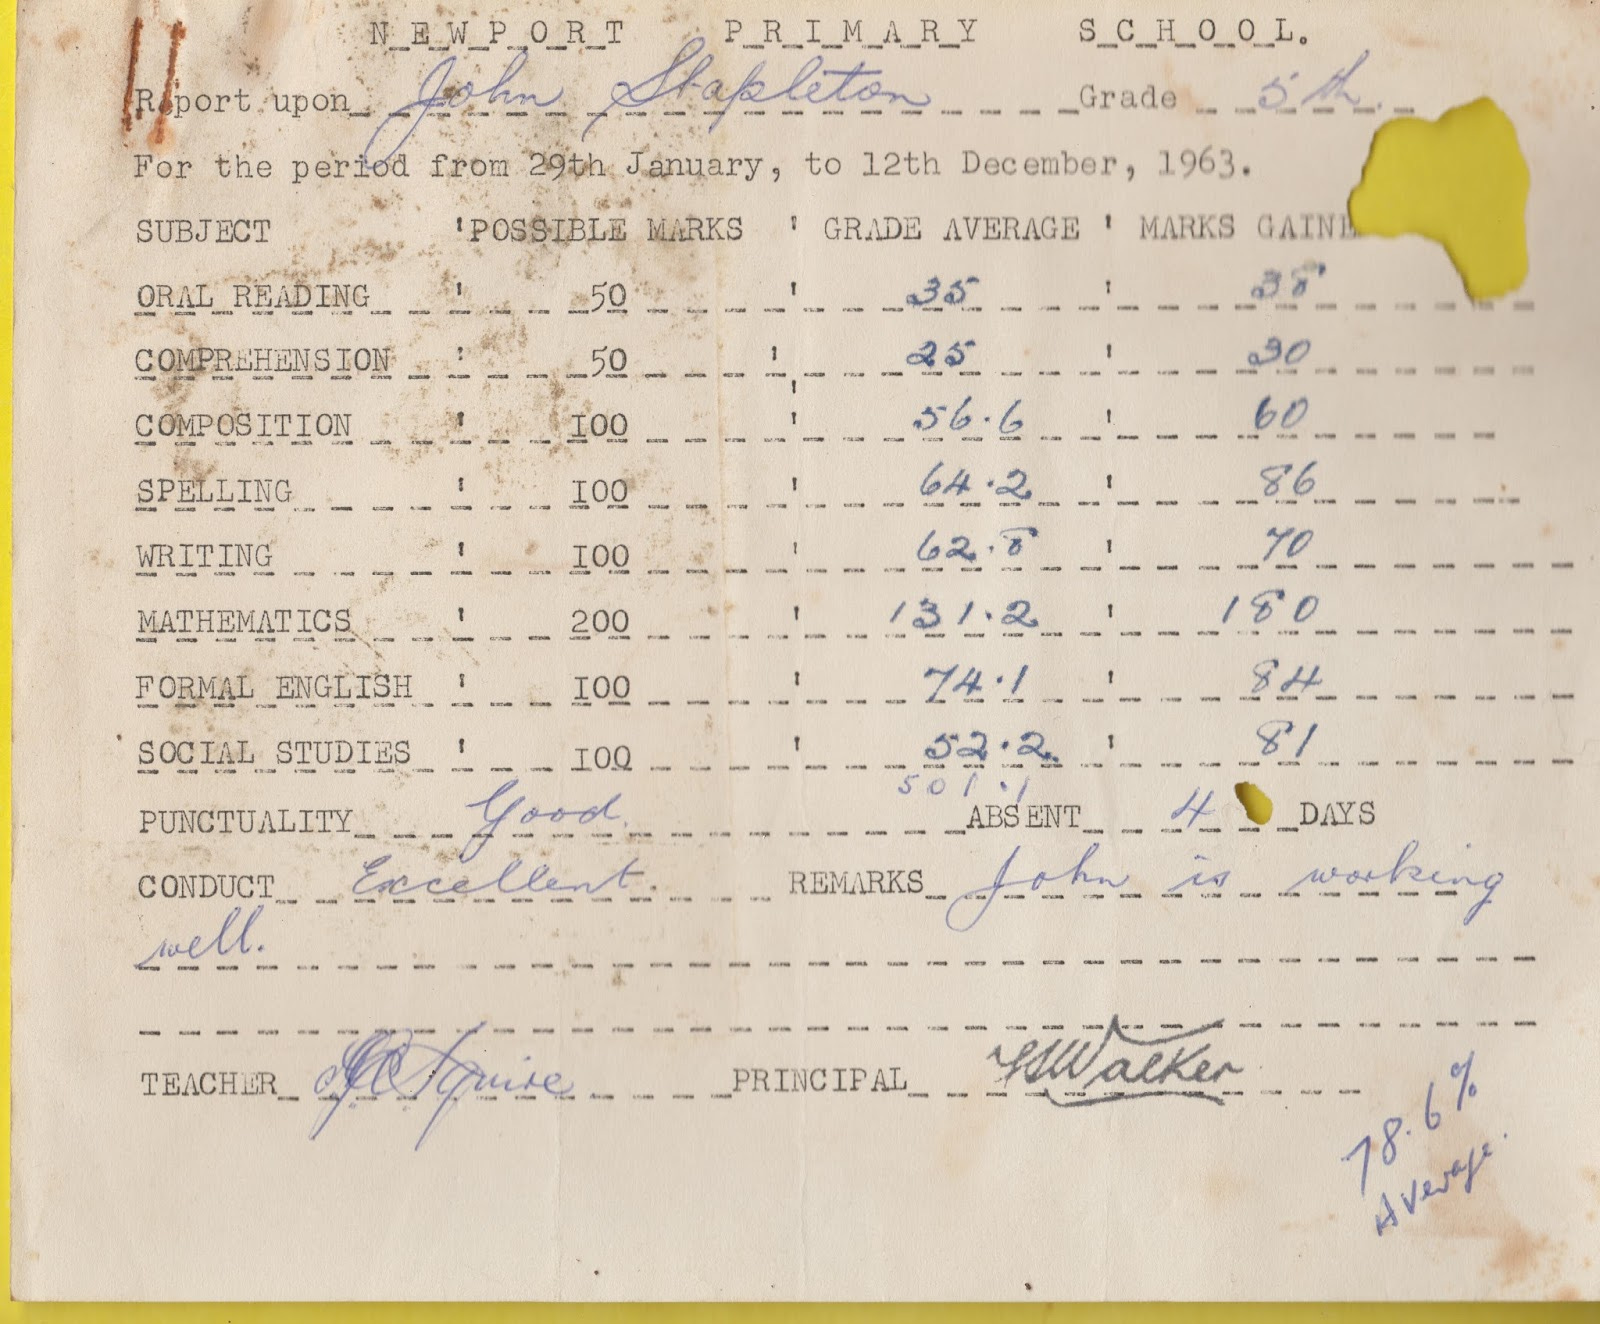 NEWPORT PRIMARY SCHOOL.
Report upon John Stapleton Grade 5th.
For the period from 29th January, to 12th December, 1963.
SUBJECT ' POSSIBLE MARKS ' GRADE AVERAGE ' MARKS GAINE
ORAL READING ' 50 ' 35 ' 38
COMPREHENSION ' 50 ' 25 ' 30
COMPOSITION ' 100 ' 56.6 ' 60
SPELLING ' 100 ' 64.2 ' 86
WRITING ' 100 ' 62.8 ' 70
MATHEMATICS ' 200 ' 131.2 ' 180
FORMAL ENGLISH ' 100 ' 74.1 ' 84
SOCIAL STUDIES ' 100 ' 52.2 ' 81
501.1
PUNCTUALITY Good. ABSENT 4 DAYS
CONDUCT Excellent. REMARKS John is working
well.
TEACHER Squire PRINCIPAL Walker
78.6%
Average.